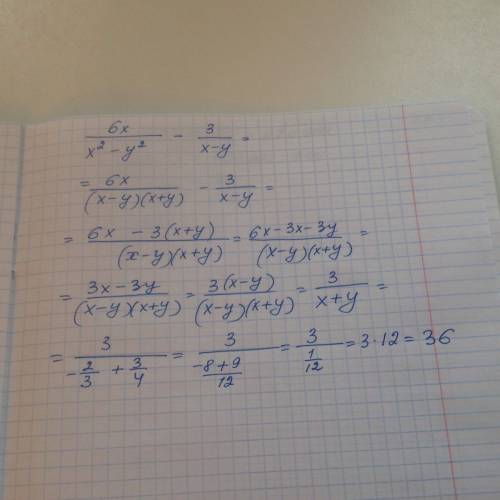 6x/(x² - y²) - 3/(x-y) =
= 6x/((x-y)(x+y)) - 3/(x-y) =
= (6x - 3(x+y))/((x-y)(x+y)) = (6x - 3x - 3y)/((x-y)(x+y)) =
= (3x - 3y)/((x-y)(x+y)) = 3(x-y)/((x-y)(x+y)) = 3/(x+y) =
= 3/(-2/3 + 3/4) = 3/((-8+9)/12) = 3/(1/12) = 3·12 = 36